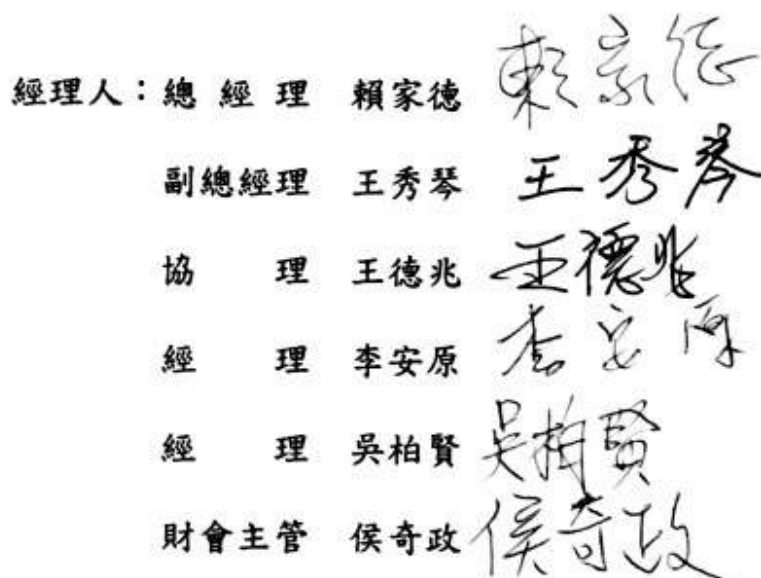 經理人：總經理 賴家德 賴家德
副總經理 王秀琴 王秀琴
協理 王德兆 王德兆
經理 李安原 李安原
經理 吳柏賢 吳柏賢
財會主管 侯奇政 侯奇政